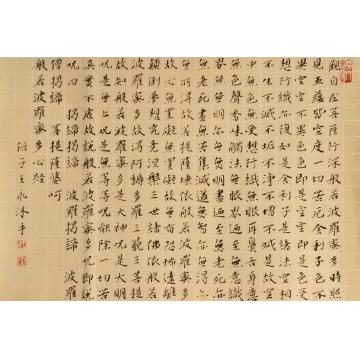 觀自在菩薩行深般若波羅蜜多時照
見五蘊皆空度一切苦厄舍利子色不
異空空不異色色即是空空即是色受
想行識亦復如是舍利子是諸法空相
不生不滅不垢不淨不增不減是故空
中無色無受想行識無眼耳鼻舌身意
無色聲香味觸法無眼界乃至無意識
界無無明亦無無明盡乃至無老死亦
無老死盡無苦集滅道無智亦無得以
無所得故菩提薩埵依般若波羅蜜多
故心無罣礙無罣礙故無有恐怖遠離
顛倒夢想究竟涅槃三世諸佛依般若
波羅蜜多故得阿耨多羅三藐三菩提
故知般若波羅蜜多是大神呪是大明
呪是無上呪是無等等呪能除一切苦
真實不虛故說般若波羅蜜多呪即說
呪曰 揭諦揭諦 波羅揭諦 波羅
僧揭諦 菩提薩婆呵
般若波羅蜜多心經
子王沐手